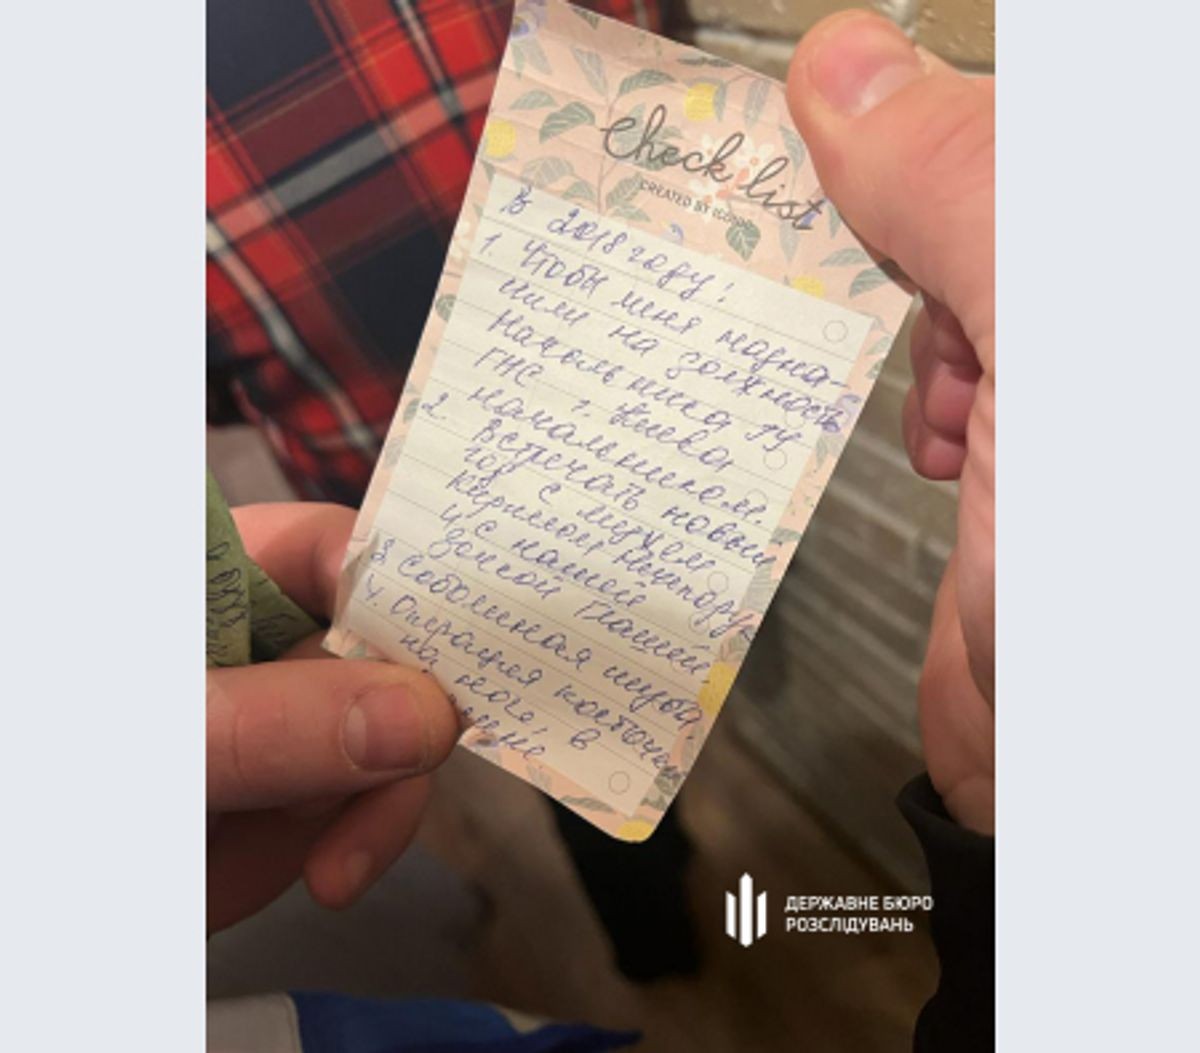 Check list
CREATED BY
В 2018 году:
1. Чтобы меня назна-
чили на должность
начальника ГУ
ГНС г. Киева
начальником.
2. Встречать новый
год с мужем
и с нашей
3 Соболиная шуба
4. Операция косточки
на ноге, в
ДЕРЖАВНЕ БЮРО
РОЗСЛІДУВАНЬ